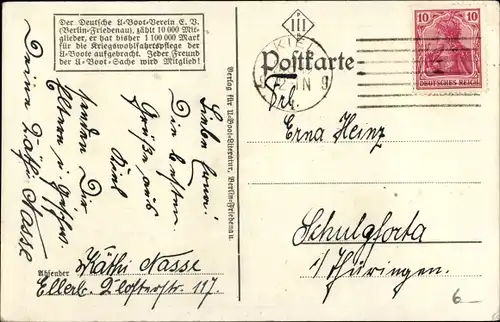 Der Deutsche U-Boot-Verein E. V.
(Berlin-Friedenau), zählt 10 000 Mit-
glieder, er hat bisher 1 100 000 Mark
für die Kriegswohlfahrtspflege der
U-Boote aufgebracht. Jeder Freund
der U-Boot-Sache wird Mitglied!
Liebe Erna!
Die besten
Grüße aus
Kiel
senden Dir
Eltern u.
Deine Käthi Nasse
Absender Käthi Nasse
Ellerb. Klosterstr. 117.
Verlag für U-Boot-Literatur, Berlin-Friedenau.
III
KIEL
Postkarte
10 10
DEUTSCHES REICH
Frl.
Erna Heinz
Schulpforta
i/Thüringen.
6